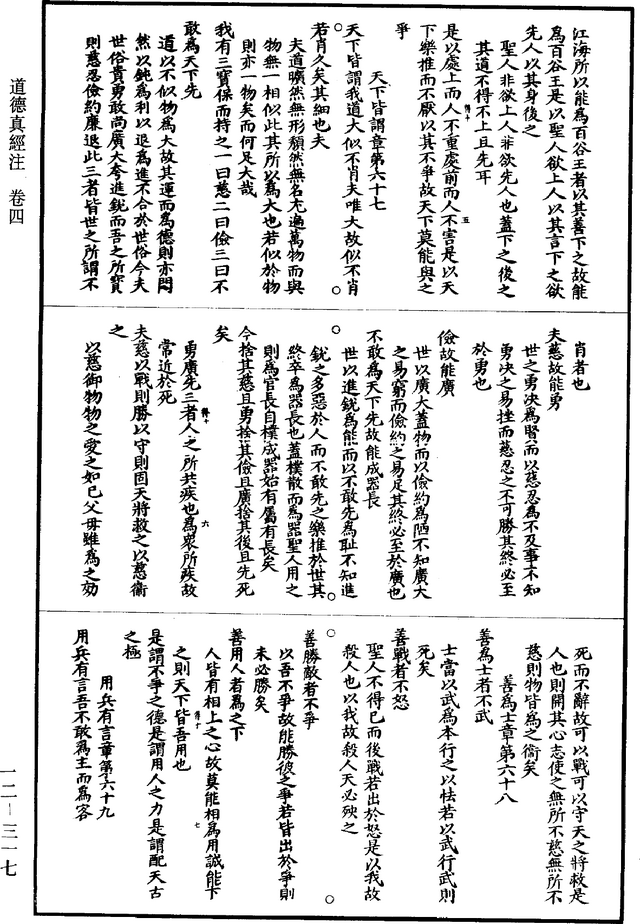 道德真經注　卷四
江海所以能為百谷王者以其善下之故能
為百谷王是以聖人欲上人以其言下之欲
先人以其身後之
聖人非欲上人非欲先人也蓋下之後之
其道不得不上且先耳
是以處上而人不重處前而人不害是以天
下樂推而不厭以其不爭故天下莫能與之
爭
天下皆謂章第六十七
天下皆謂我道大似不肖夫唯大故似不肖
若肖久矣其細也夫
夫道曠然無形頹然無名充遍萬物而與
物無一相似此其所以為大也若似於物
則亦一物矣而何足大哉
我有三寶保而持之一曰慈二曰儉三曰不
敢為天下先
道以不似物為大故其運而為德則亦悶
然以鈍為利以退為進不合於世俗今夫
世俗貴勇敢尚廣大夸進銳而吾之所寶
則慈忍儉約廉退此三者皆世之所謂不
肖者也
夫慈故能勇
世之勇決為賢而以慈忍為不及事不知
勇決之易挫而慈忍之不可勝其終必至
於勇也
儉故能廣
世以廣大蓋物而以儉約為陋不知廣大
之易窮而儉約之易足其終必至於廣也
不敢為天下先故能成器長
世以進銳為能而以不敢先為恥不知進
銳之多惡於人而不敢先之樂推於世其
終卒為器長也蓋樸散而為器聖人用之
則為官長自樸成器始有屬有長矣
今捨其慈且勇捨其儉且廣捨其後且先死
矣
勇廣先三者人之所共疾也為眾所疾故
常近於死
夫慈以戰則勝以守則固天將救之以慈衛
之
以慈御物物之愛之如己父母雖為之効
死而不辭故可以戰可以守天之將救是
人也則開其心志使之無所不慈無所不
慈則物皆為之衛矣
善為士章第六十八
善為士者不武
士當以武為本行之以怯若以武行武則
死矣
善戰者不怒
聖人不得已而後戰若出於怒是以我故
殺人也以我故殺人天必殃之
善勝敵者不爭
以吾不爭故能勝彼之爭若皆出於爭則
未必勝矣
善用人者為之下
人皆有相上之心故莫能相為用誠能下
之則天下皆吾用也
是謂不爭之德是謂用人之力是謂配天古
之極
用兵有言章第六十九
用兵有言吾不敢為主而為客
一二—三一七